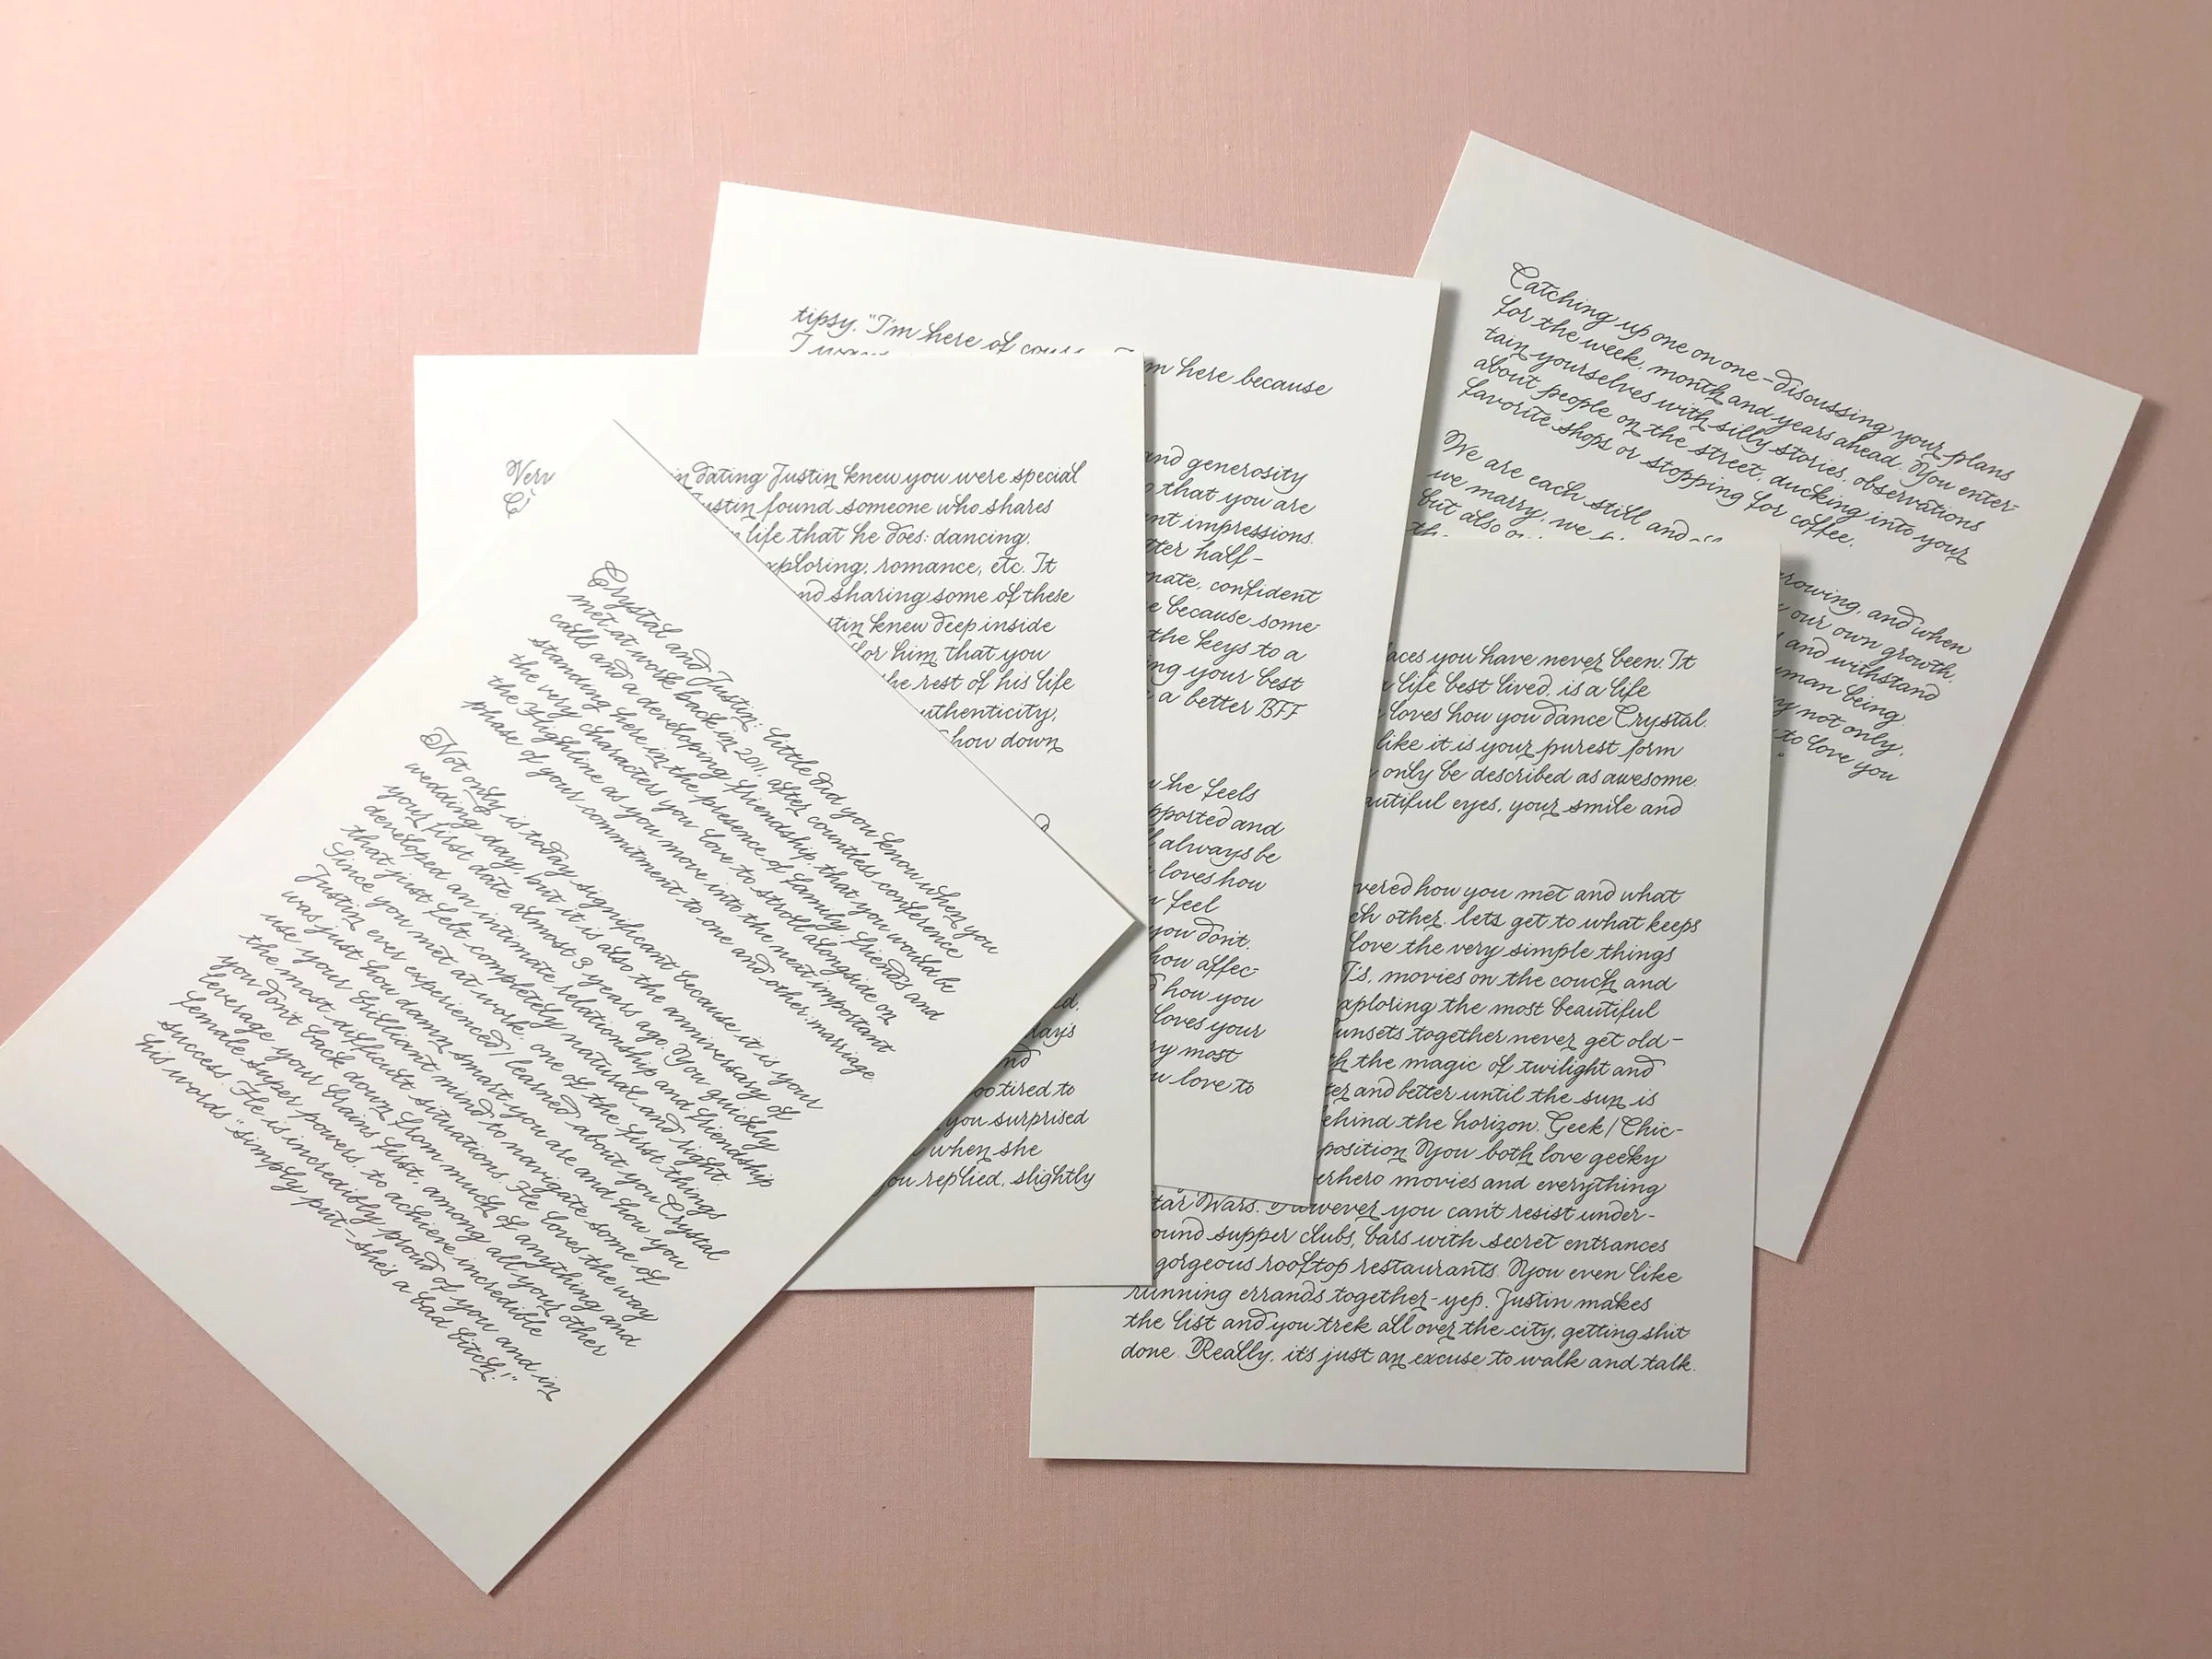 Crystal and Justin: Little did you know when you
met at work back in 2011, after countless conference
calls and a developing friendship, that you would be
standing here in the presence of family, friends and
the very characters you love to stroll alongside on
the Highline as you move into the next important
phase of your commitment to one and other: marriage.
Not only is today significant because it is your
wedding day, but it is also the anniversary of
your first date almost 3 years ago. You quickly
developed an intimate relationship and friendship
that just felt completely natural and right.
Since you met at work, one of the first things
Justin ever experienced/learned about you Crystal
was just how damn smart you are and how you
use your brilliant mind to navigate some of
the most difficult situations. He loves the way
you don't back down from much of anything and
leverage your brains first, among all your other
female super powers, to achieve incredible
success. He is incredibly proud of you and in
his words "simply put-she's a bad bitch!"
in dating Justin knew you were special
Justin found someone who shares
life that he does: dancing,
exploring, romance, etc. It
and sharing some of these
Justin knew deep inside
for him that you
the rest of his life
authenticity,
how down
days
and
too tired to
you surprised
when she
you replied, slightly
tipsy, "I'm here of course
m here because
and generosity
that you are
impressions.
better half-
confident
because some-
the keys to a
your best
a better BFF
he feels
supported and
always be
loves how
feel
you don't.
how affec-
how you
loves your
most
love to
places you have never been. It
life best lived, is a life
loves how you dance Crystal.
like it is your purest form
only be described as awesome.
beautiful eyes, your smile and
how you met and what
other, lets get to what keeps
love the very simple things
movies on the couch and
exploring the most beautiful
sunsets together never get old-
the magic of twilight and
and better until the sun is
behind the horizon. Geek/Chic-
you both love geeky
superhero movies and everything
Star Wars. However you can't resist under-
ound supper clubs, bars with secret entrances
gorgeous rooftop restaurants. You even like
running errands together-yep, Justin makes
the list and you trek all over the city, getting shit
done. Really, it's just an excuse to walk and talk.
Catching up one on one-discussing your plans
for the week, month and years ahead. You enter-
tain yourselves with silly stories, observations
about people on the street, ducking into your
favorite shops or stopping for coffee.
We are each still and growing, and when
we marry, we our own growth,
but also and withstand
human being
not only,
to love you